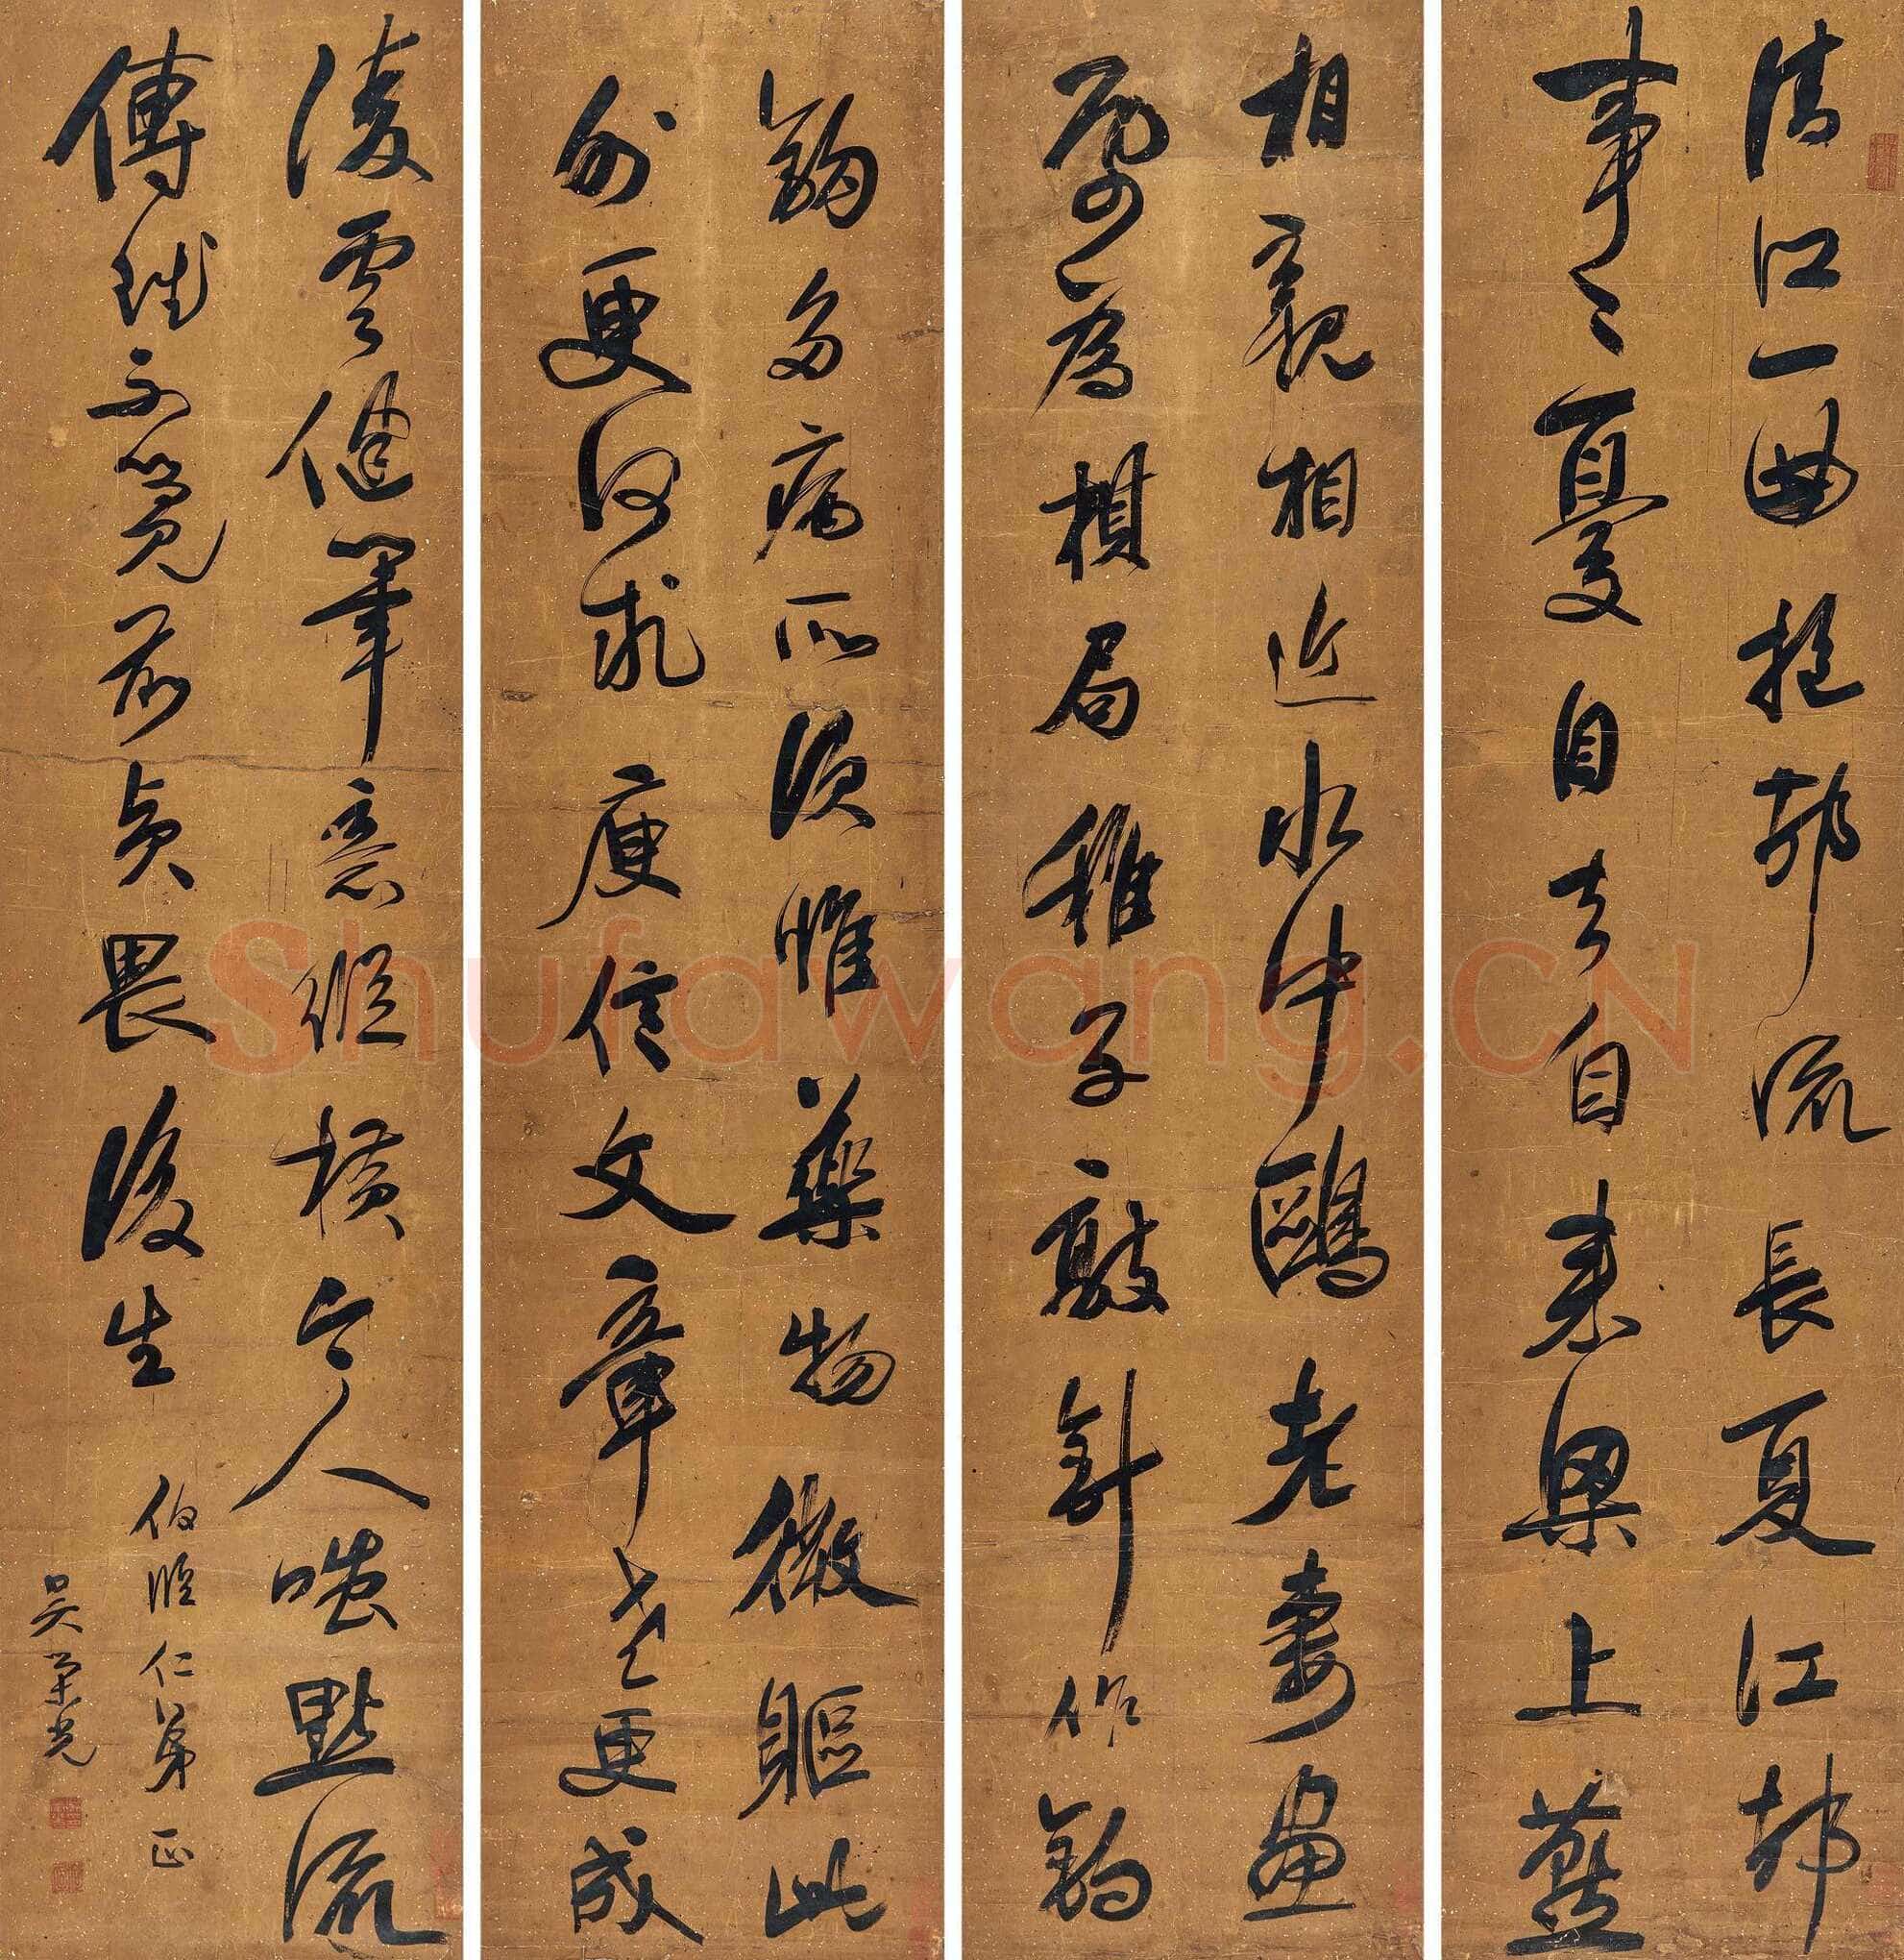 清江一曲抱邨流長夏江邨
事〻憂自去自來梁上燕
相親相近水中鷗老妻畫
帋為棋局稚子敲針作釣
鉤多病所須惟藥物微軀此
外更何求庾信文章老更成
凌雲健筆意縱橫今人嗤點流
傳賦不覺前賢畏後生
伯臨仁弟正
吳榮光
Shufawang.CN